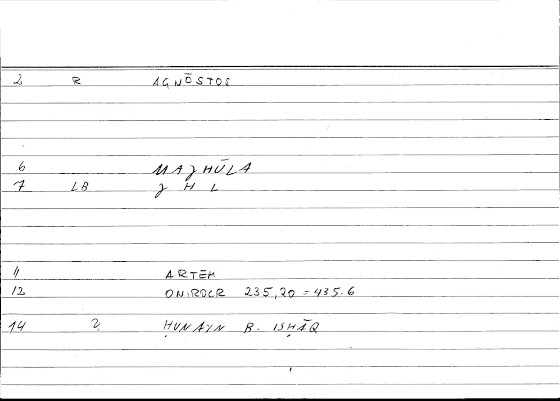 2 R AGNŌSTOS
6 MAJHŪLA
7 LB J H L
11 ARTEM
12 ONIROCR 235,20 = 435.6
14 2 ḤUNAYN B. ISḤĀQ